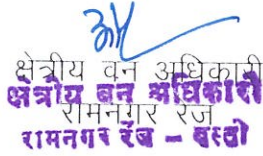 क्षेत्रीय वन अधिकारी
क्षेत्रीय वन अधिकारी
रामनगर रेंज
रामनगर रेंज - बस्ती